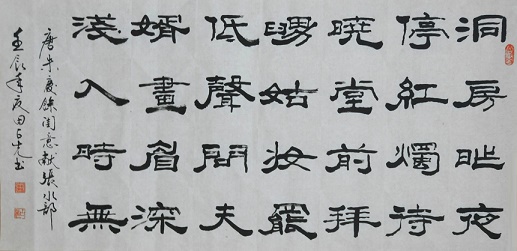 洞房昨夜
停紅燭待
曉堂前拜
舅姑妝罷
低聲問夫
婿畫眉深
淺入時無
唐朱慶餘閨意献張水部
壬辰年夏田书